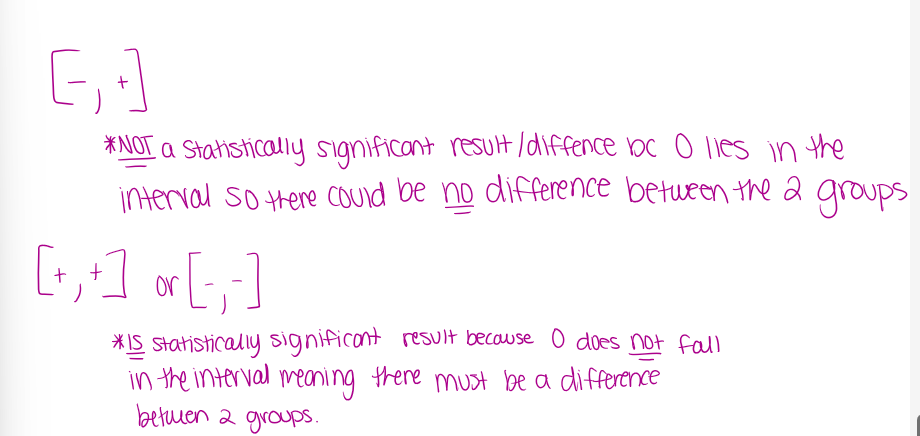 [-,+]
*NOT a statistically significant result/diffence bc 0 lies in the
interval so there could be no difference between the 2 groups
[+,+] or [-,-]
*IS statistically significant result because 0 does not fall
in the interval meaning there must be a difference
between 2 groups.